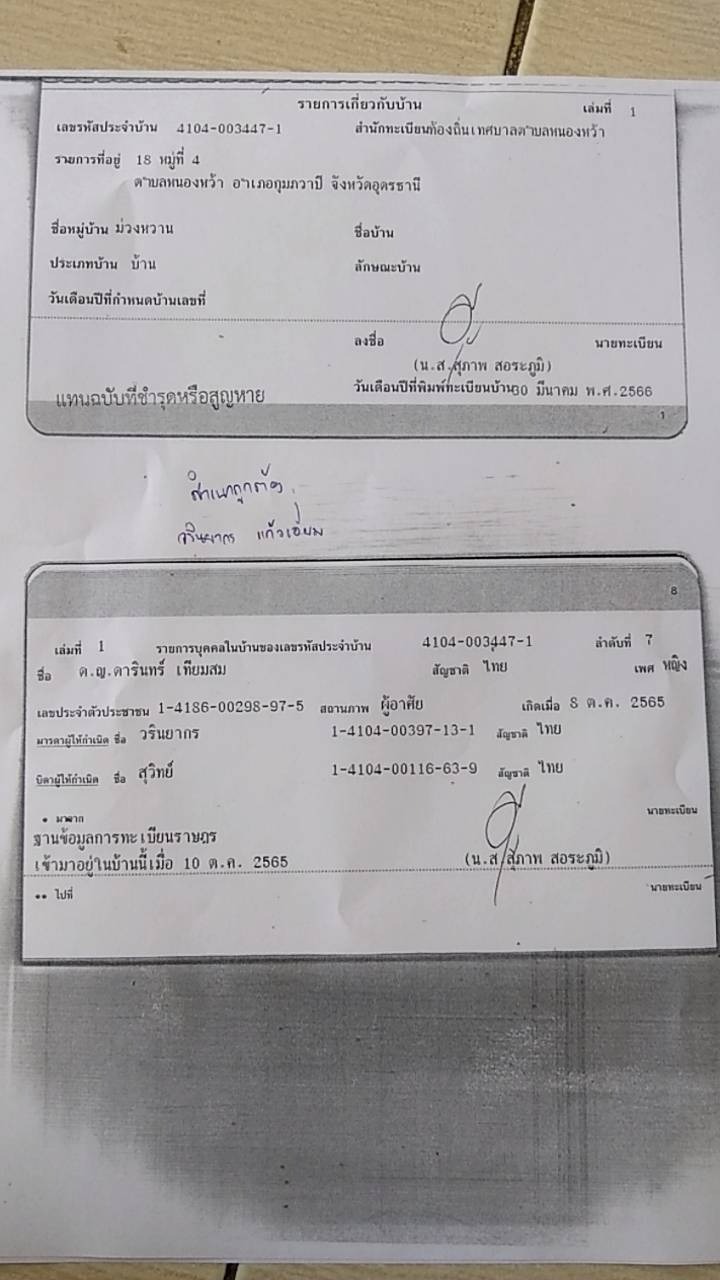 รายการเกี่ยวกับบ้าน เล่มที่ 1
เลขรหัสประจำบ้าน 4104-003447-1 สำนักทะเบียนท้องถิ่นเทศบาลตำบลหนองหว้า
รายการที่อยู่ 18 หมู่ที่ 4
ตำบลหนองหว้า อำเภอกุมภวาปี จังหวัดอุดรธานี
ชื่อหมู่บ้าน ม่วงหวาน ชื่อบ้าน
ประเภทบ้าน บ้าน ลักษณะบ้าน
วันเดือนปีที่กำหนดบ้านเลขที่
ลงชื่อ นายทะเบียน
(น.ส.สุภาพ สอระภูมิ)
แทนฉบับที่ชำรุดหรือสูญหาย วันเดือนปีที่พิมพ์ทะเบียนบ้าน 30 มีนาคม พ.ศ.2566
1
สำเนาถูกต้อง
วรินยากร แก้วเอี่ยม
8
เล่มที่ 1 รายการบุคคลในบ้านของเลขรหัสประจำบ้าน 4104-003447-1 ลำดับที่ 7
ชื่อ ด.ญ.ดารินทร์ เทียมสม สัญชาติ ไทย เพศ หญิง
เลขประจำตัวประชาชน 1-4186-00298-97-5 สถานภาพ ผู้อาศัย เกิดเมื่อ 8 ต.ค. 2565
มารดาผู้ให้กำเนิด ชื่อ วรินยากร 1-4104-00397-13-1 สัญชาติ ไทย
บิดาผู้ให้กำเนิด ชื่อ สุวิทย์ 1-4104-00116-63-9 สัญชาติ ไทย
* มาจาก นายทะเบียน
ฐานข้อมูลการทะเบียนราษฎร
เข้ามาอยู่ในบ้านนี้เมื่อ 10 ต.ค. 2565 (น.ส.สุภาพ สอระภูมิ)
** ไปที่ นายทะเบียน